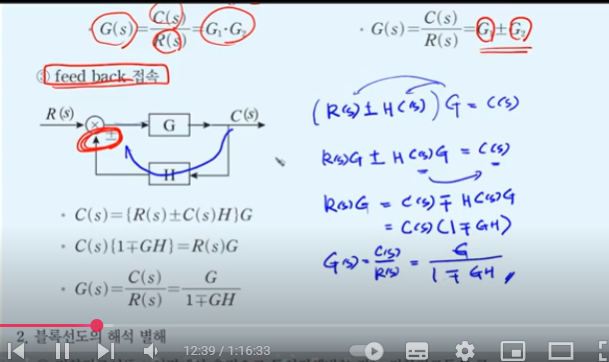 · G(s)=C(s)/R(s)=G₁·G₂
· G(s)=C(s)/R(s)=G₁±G₂
③ feed back 접속
R(s) G C(s)
±
H
· C(s)={R(s)±C(s)H}G
· C(s){1∓GH}=R(s)G
· G(s)=C(s)/R(s)=G/1∓GH
(R(s) ± H C(s)) G = C(s)
R(s)G ± H C(s) G = C(s)
R(s)G = C(s) ∓ H C(s) G
= C(s) (1 ∓ GH)
G(s) = C(s)/R(s) = G/1 ∓ GH
2. 블록선도의 해석 별해
12:39 / 1:16:33